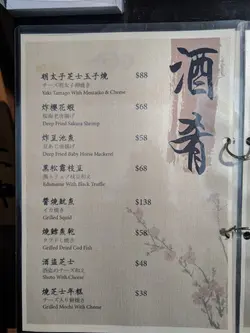 酒肴
明太子芝士玉子燒 $88
チーズ明太子卵焼き
Yaki Tamago With Mentaiko & Cheese
炸櫻花蝦 $68
桜海老唐揚げ
Deep Fried Sakura Shrimp
炸豆池魚 $58
豆あじ南蛮揚げ
Deep Fried Baby Horse Mackerel
黑松露枝豆 $68
Edamame With Black Truffle
醬燒魷魚 $138
イカ焼き
Grilled Squid
燒鱈魚乾 $58
タラ干し焼き
Grilled Dried Cod Fish
酒盜芝士 $48
酒盗のチーズ和え
Shuto With Cheese
燒芝士年糕 $38
チーズ入り餅焼き
Grilled Mochi With Cheese